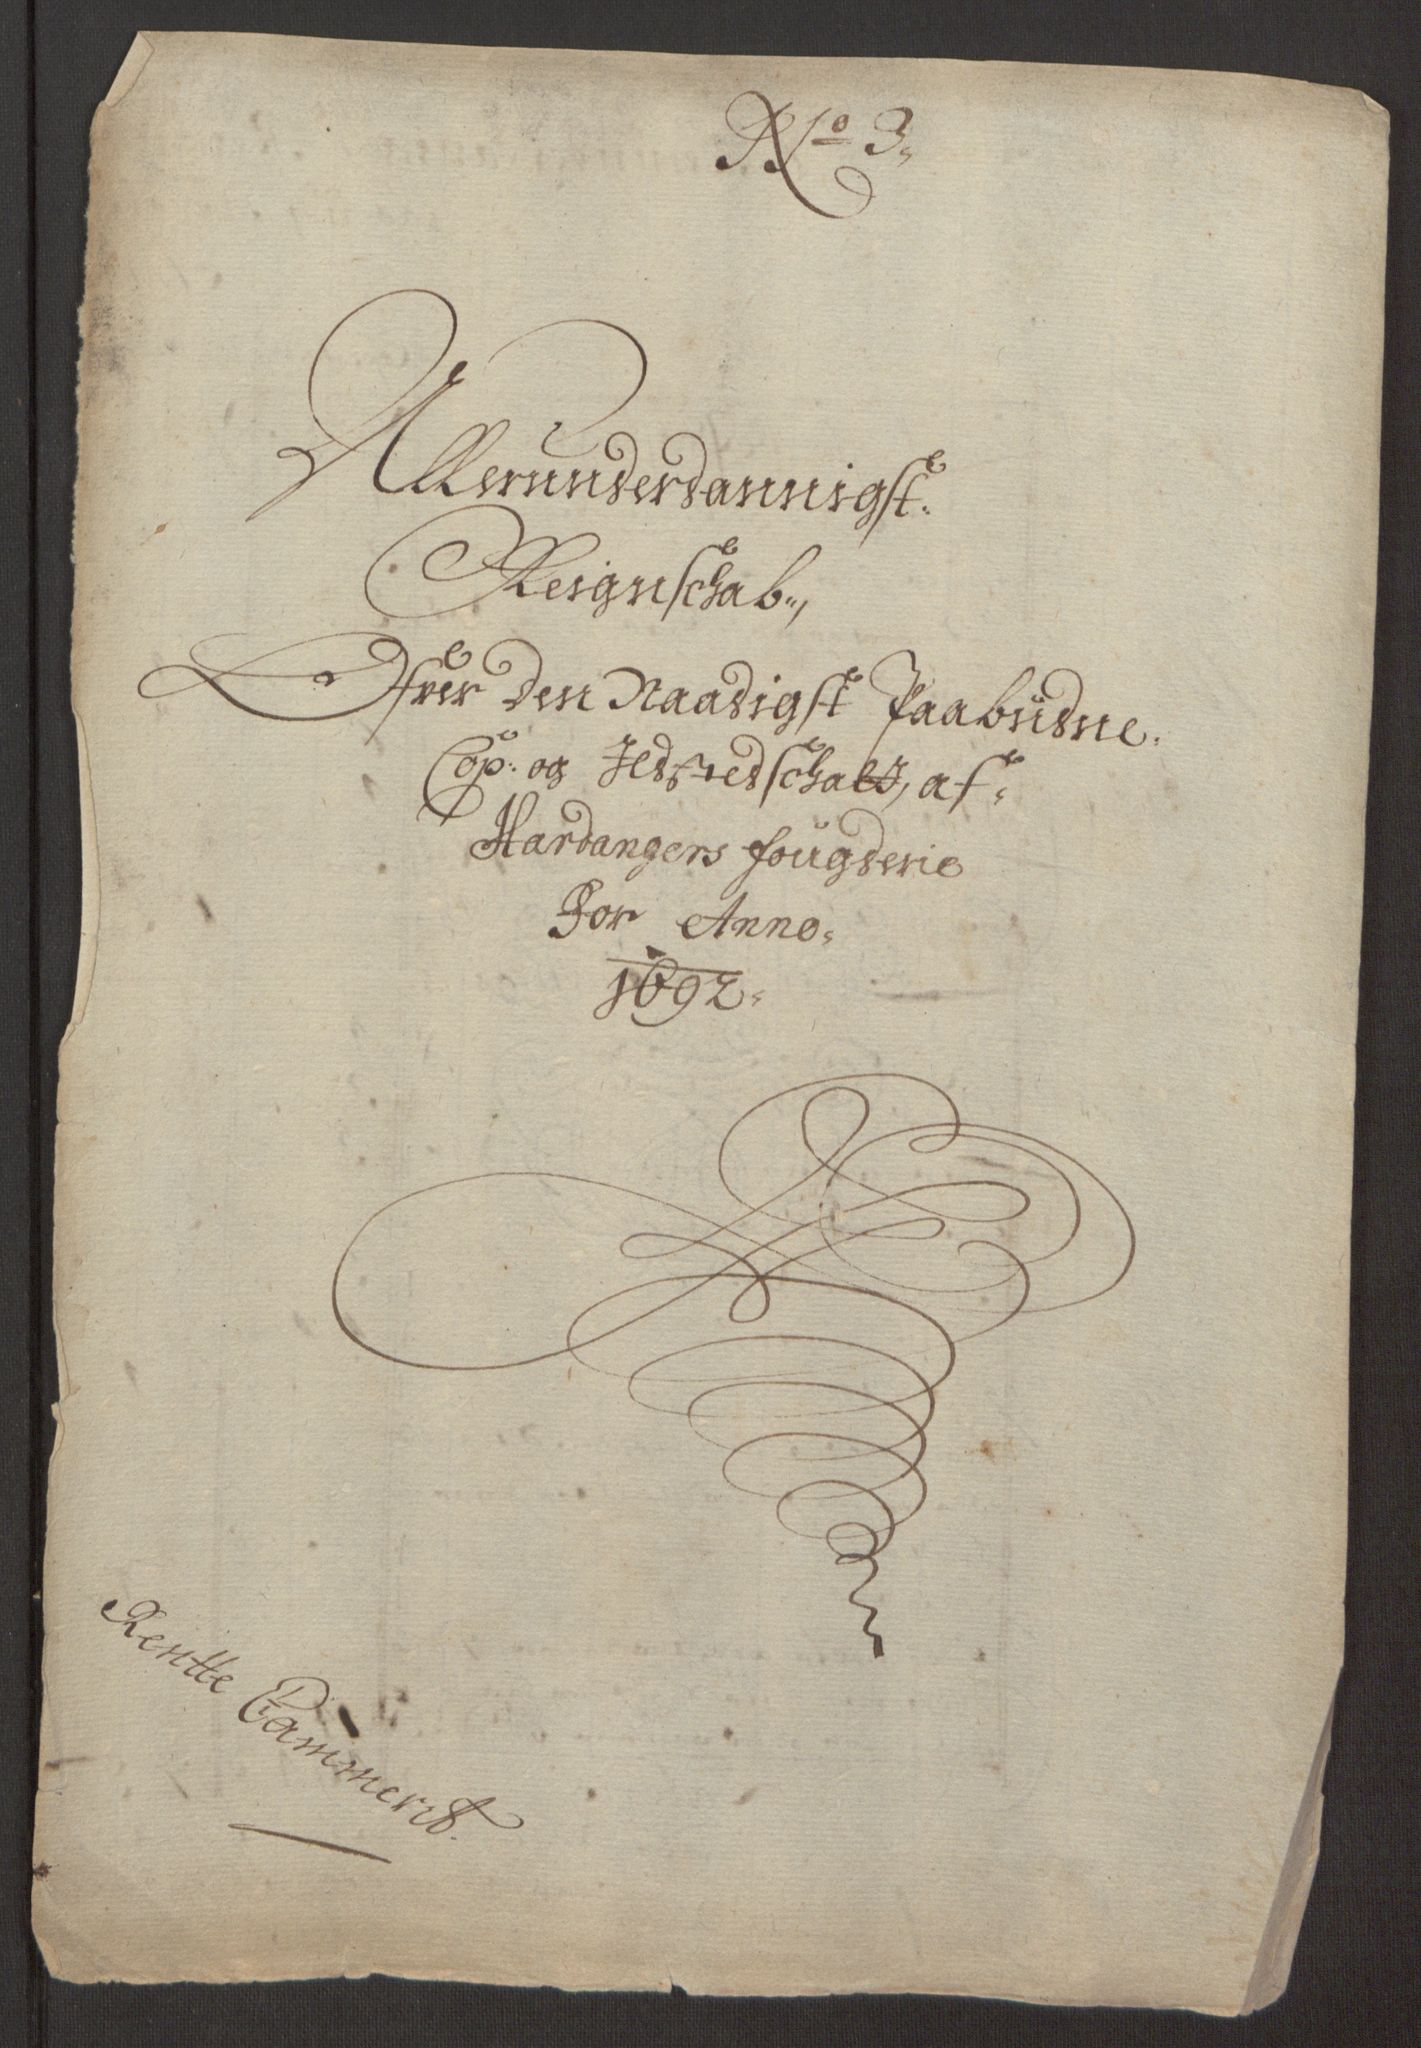 No 3,
Allerunderdannigst.
Reignschab,
Ofver den Naadigst Paabudne.
Cop: og Ildstedschatt, af
Hardangers fougderie
For Anno,
1692.
Rentte Cammerit.